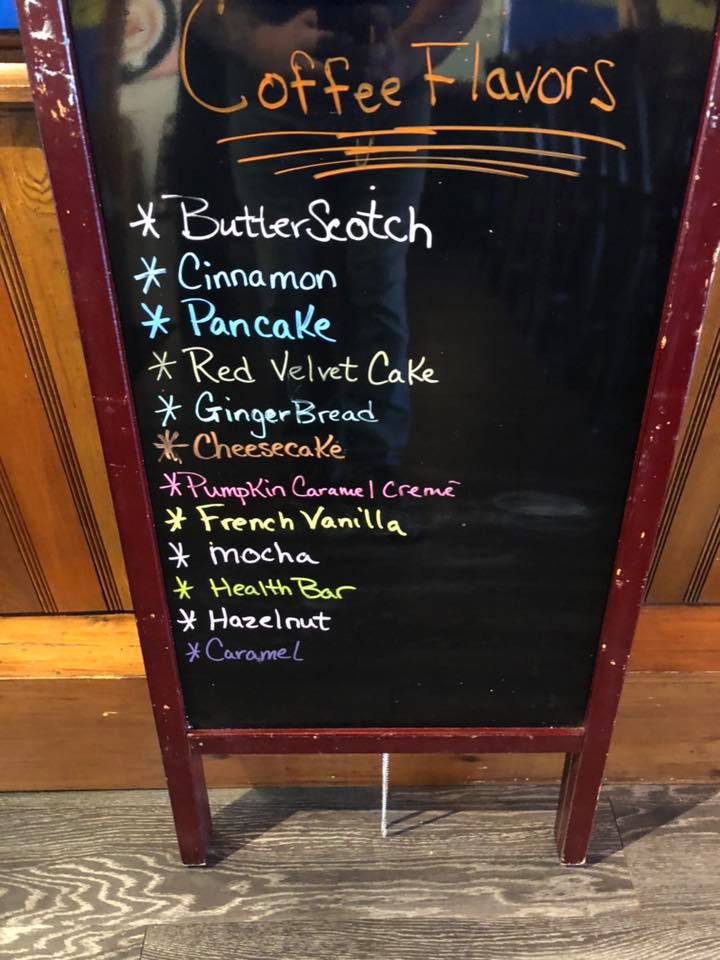 Coffee Flavors
* ButterScotch
* Cinnamon
* Pancake
* Red Velvet Cake
* GingerBread
* Cheesecake
* Pumpkin Caramel Cremé
* French Vanilla
* mocha
* Health Bar
* Hazelnut
* Caramel